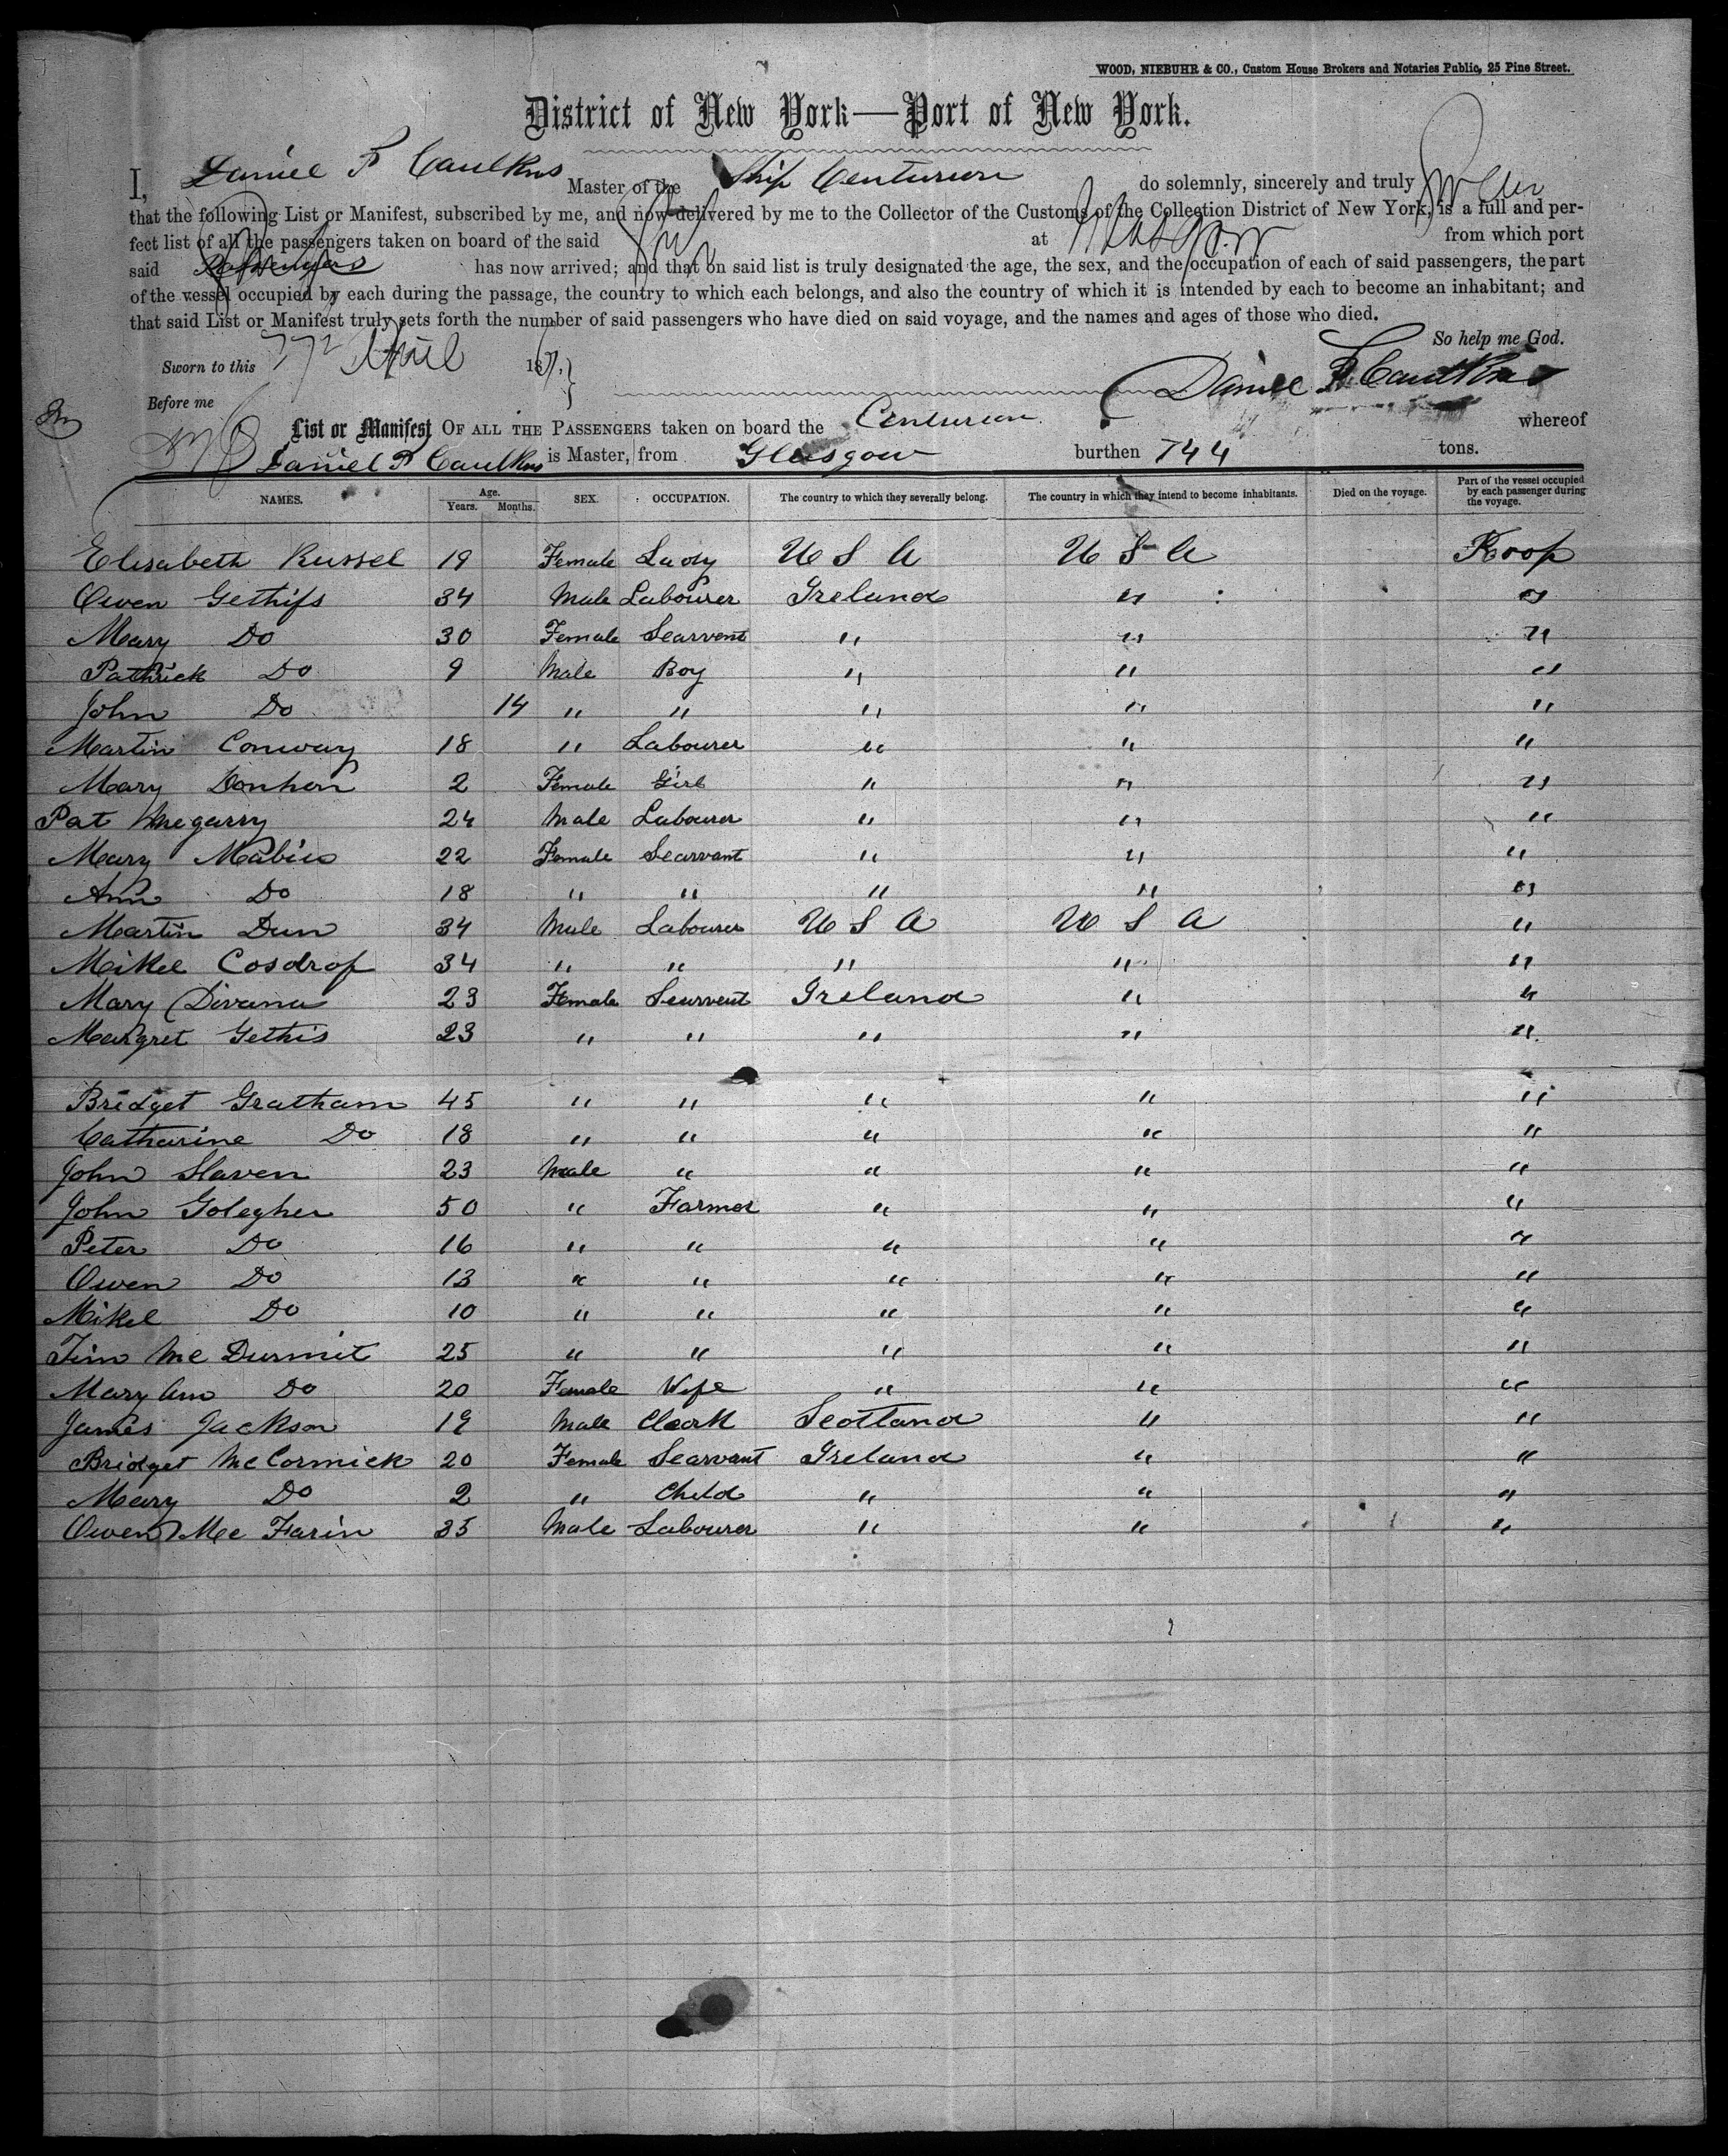 WOOD, NIEBUHR & CO., Custom House Brokers and Notaries Public, 25 Pine Street.
District of New York—Port of New York.
I, Daniel F Caulkins Master of the Ship Centurion do solemnly, sincerely and truly swear
that the following List or Manifest, subscribed by me, and now delivered by me to the Collector of the Customs of the Collection District of New York, is a full and per-
fect list of all the passengers taken on board of the said Ship at Glasgow from which port
said Passengers has now arrived; and that on said list is truly designated the age, the sex, and the occupation of each of said passengers, the part
of the vessel occupied by each during the passage, the country to which each belongs, and also the country of which it is intended by each to become an inhabitant; and
that said List or Manifest truly sets forth the number of said passengers who have died on said voyage, and the names and ages of those who died.
So help me God.
Sworn to this April 186
Daniel F Caulkins
Before me
List or Manifest OF ALL THE PASSENGERS taken on board the Centurion whereof
Daniel F Caulkins is Master, from Glasgow burthen 744 tons.
NAMES. Age. Years. Months. SEX. OCCUPATION. The country to which they severally belong. The country in which they intend to become inhabitants. Died on the voyage. Part of the vessel occupied by each passenger during the voyage.
Elisabeth Russel 19 Female Lady U S A U S A Poop
Owen Gethifs 34 Male Labourer Ireland " "
Mary Do 30 Female Searvent " " "
Pathrick Do 9 Male Boy " " "
John Do 14 " " " " "
Martin Conway 18 " Labourer " " "
Mary Donhon 2 Female Girl " " "
Pat Megarry 24 Male Labourer " " "
Mary Mabies 22 Female Searvant " " "
Ann Do 18 " " " " "
Martin Dun 34 Male Labourer U S A U S A "
Mikel Cosdrof 34 " " " " "
Mary Divana 23 Female Searvent Ireland " "
Margret Gethis 23 " " " " "
Bridget Gratham 45 " " " " "
Catharine Do 18 " " " " "
John Slaven 23 Male " " " "
John Golegher 50 " Farmer " " "
Peter Do 16 " " " " "
Owen Do 13 " " " " "
Mikel Do 10 " " " " "
Tim Mc Durmit 25 " " " " "
Mary Ann Do 20 Female Wife " " "
James Jackson 19 Male Cleark Scotland " "
Bridget McCormick 20 Female Searvant Ireland " "
Mary Do 2 " Child " " "
Owen Mc Farin 35 Male Labourer " " "